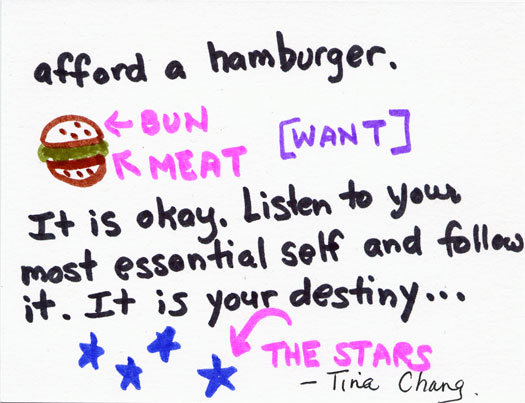 afford a hamburger.
BUN
[WANT]
MEAT
It is okay. Listen to your
most essential self and follow
it. It is your destiny...
THE STARS
- Tina Chang.